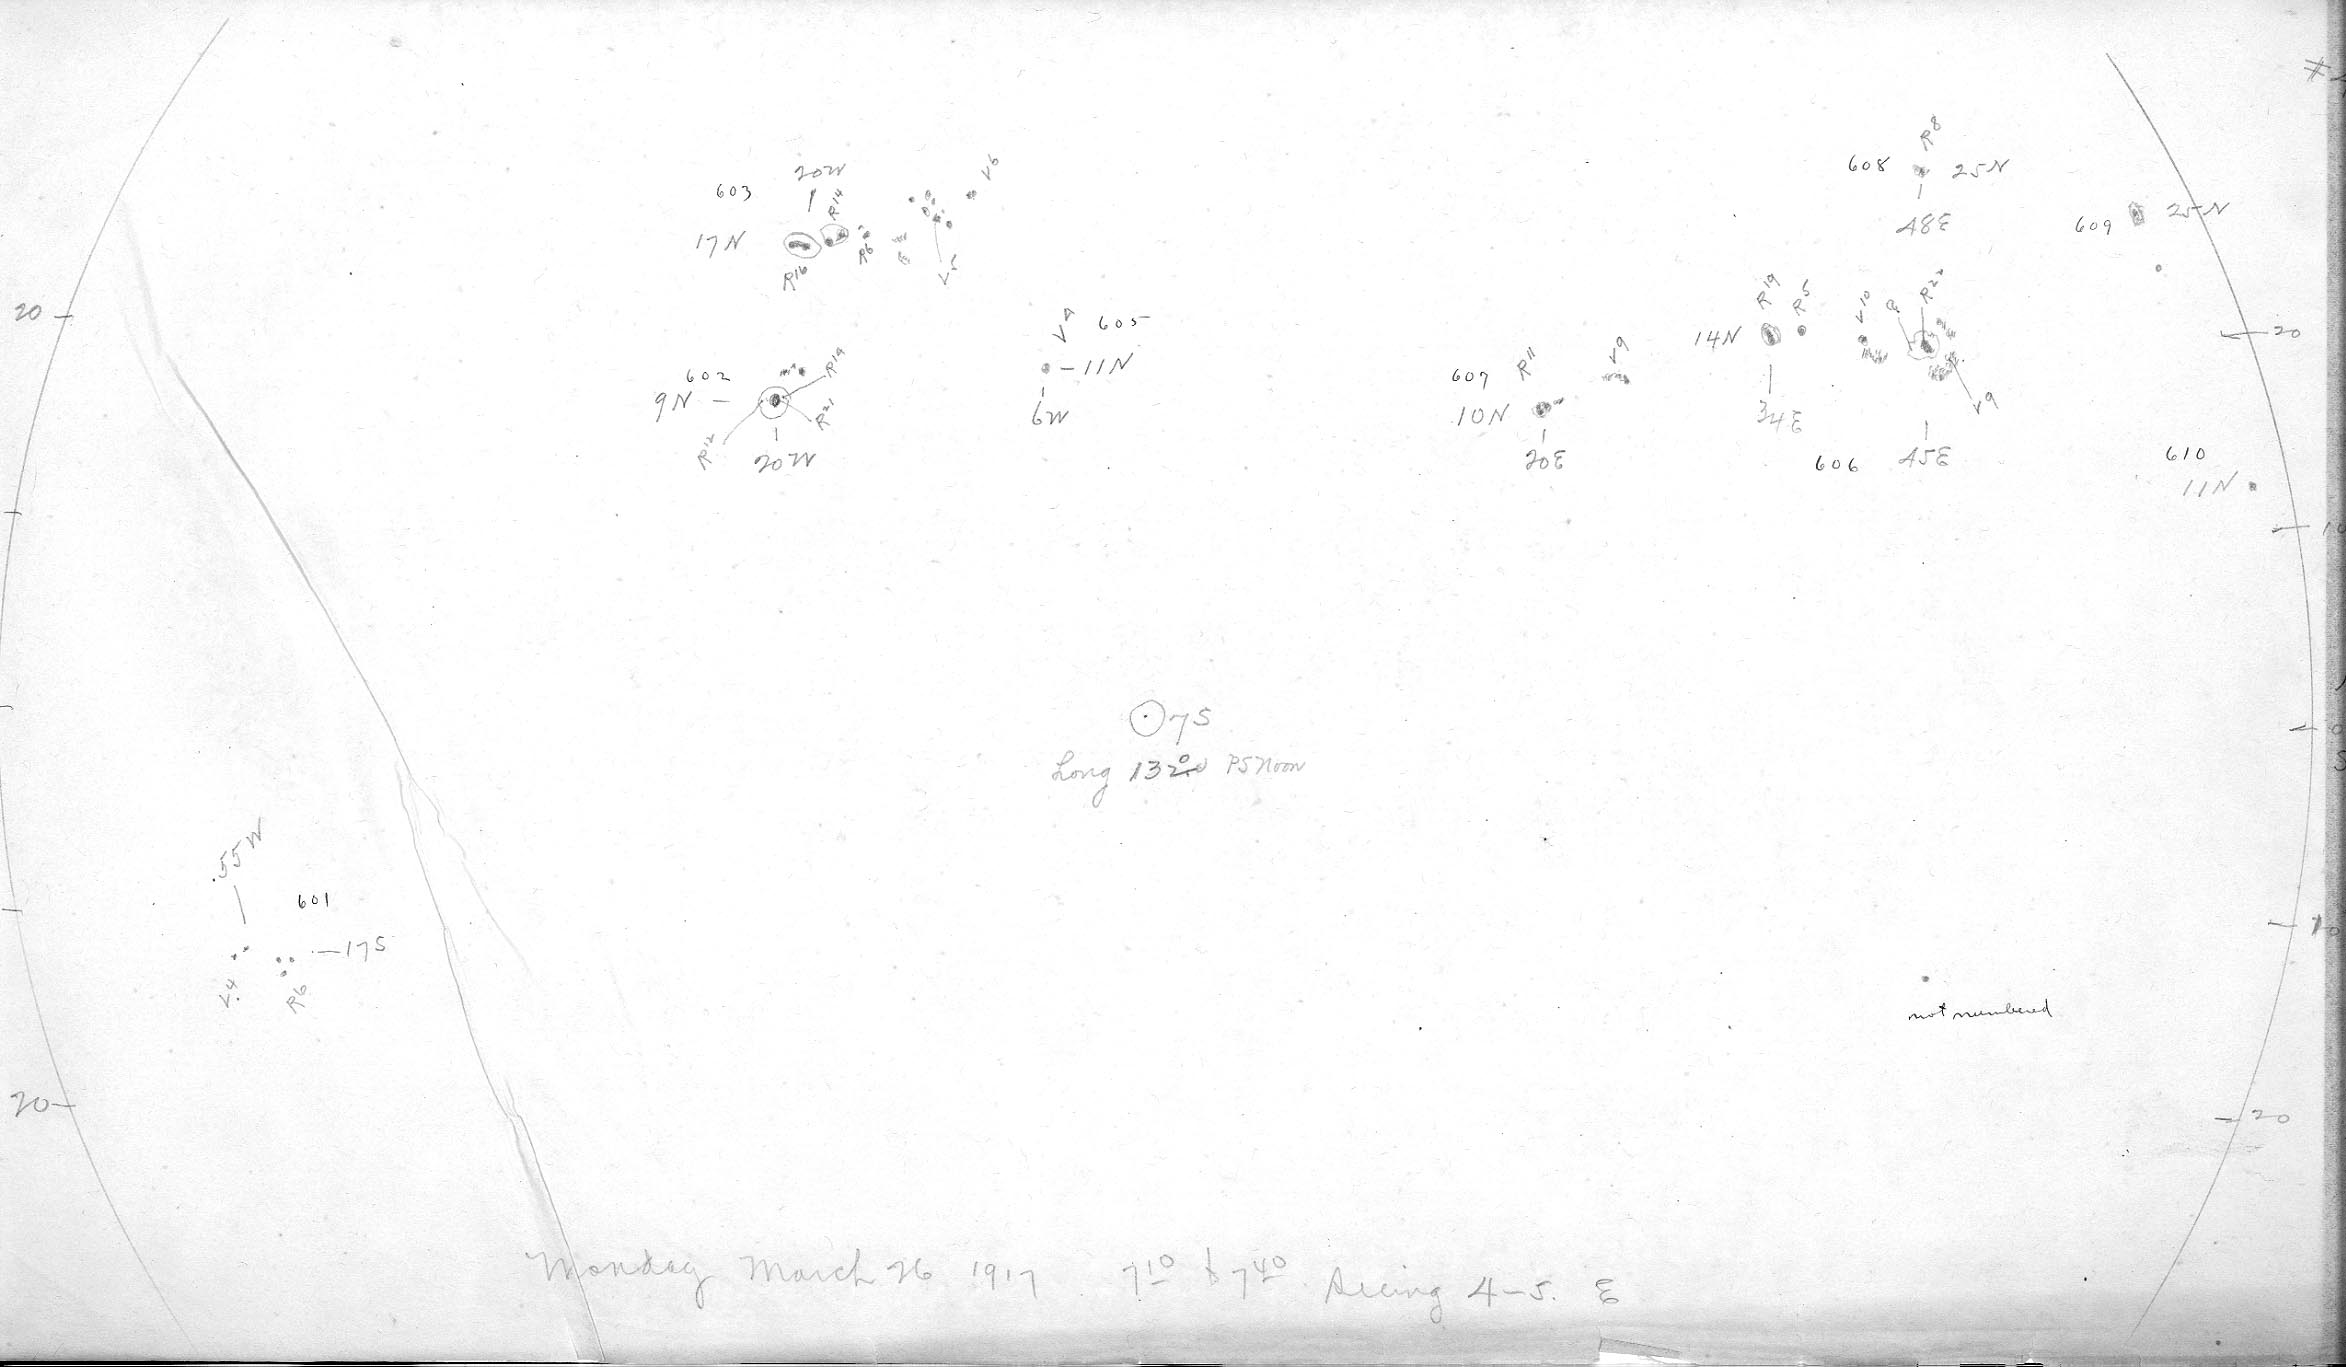 R8
608 25N
48E
603 20W
R14
17N
R6
R16
V6
V5
609 25N
20
20
R19 R5 V10 a R22
14N
34E
V9
606 45E
V4 605
11N
6W
602
9N
R19
R21
R12
20W
607 R11 V9
10N
20E
610
11N
10
0
S
7S
Long 132.0 PS Noon
55W
601
17S
V4 R6
10
not numbered
20
20
Monday March 26 1917 7 10 & 7 40 Seeing 4-5. E